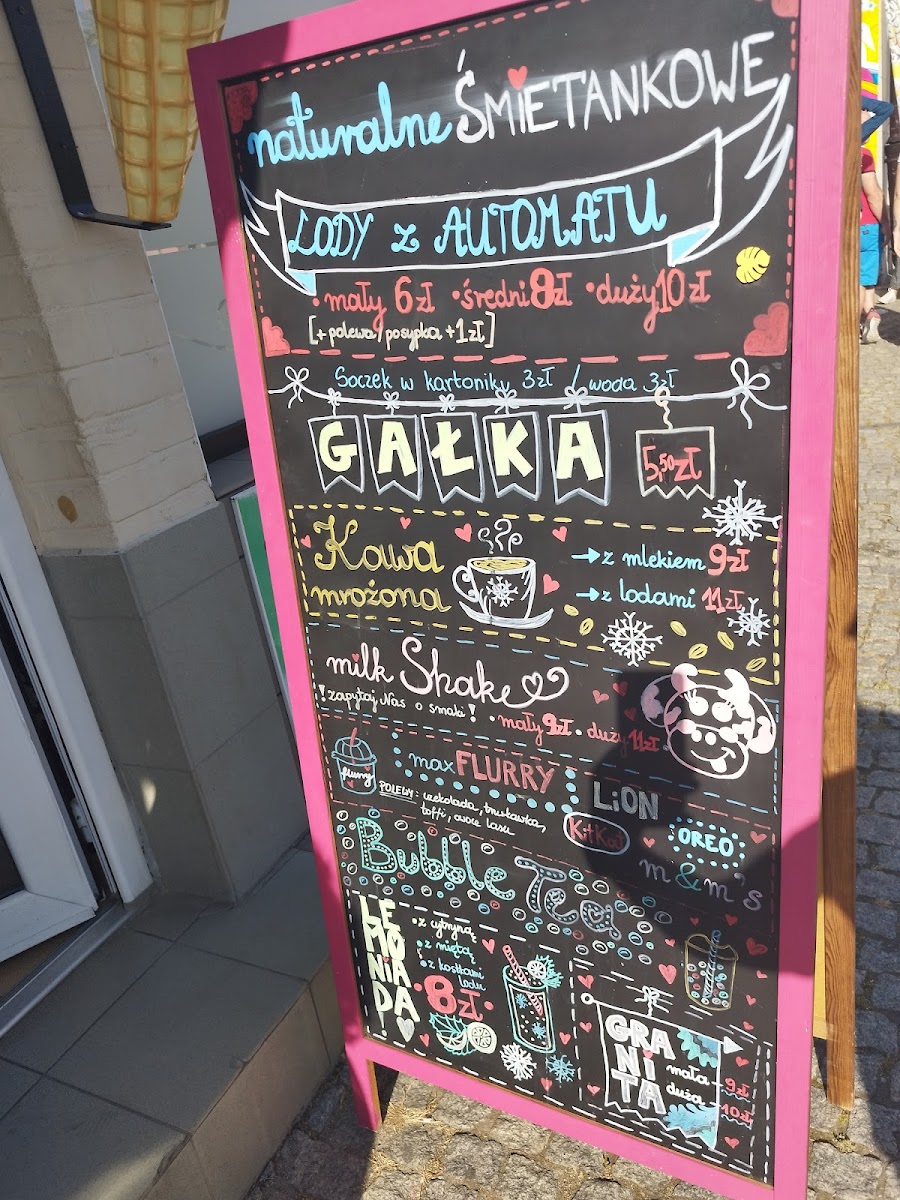 naturalne ŚMIETANKOWE
LODY z AUTOMATU
• mały 6 zł • średni 8zł • duży 10 zł
[+ polewa / posypka + 1 zł]
Soczek w kartoniku 3 zł / woda 3 zł
GAŁKA 5,50 zł
Kawa mrożona
→ z mlekiem 9 zł
→ z lodami 11 zł
milk Shake
! zapytaj Nas o smaki ! • mały 9 zł • duży 11 zł
flurry
max FLURRY
POLEWY: czekolada, truskawka,
toffi, owoce lasu
LiON
KitKat
OREO
m & m's
Bubble Tea
LEMONiADA
• z cytryną
• z miętą
• z kostkami
lodu
• 8 zł •
GRANiTA
mała - 9 zł
duża - 10 zł